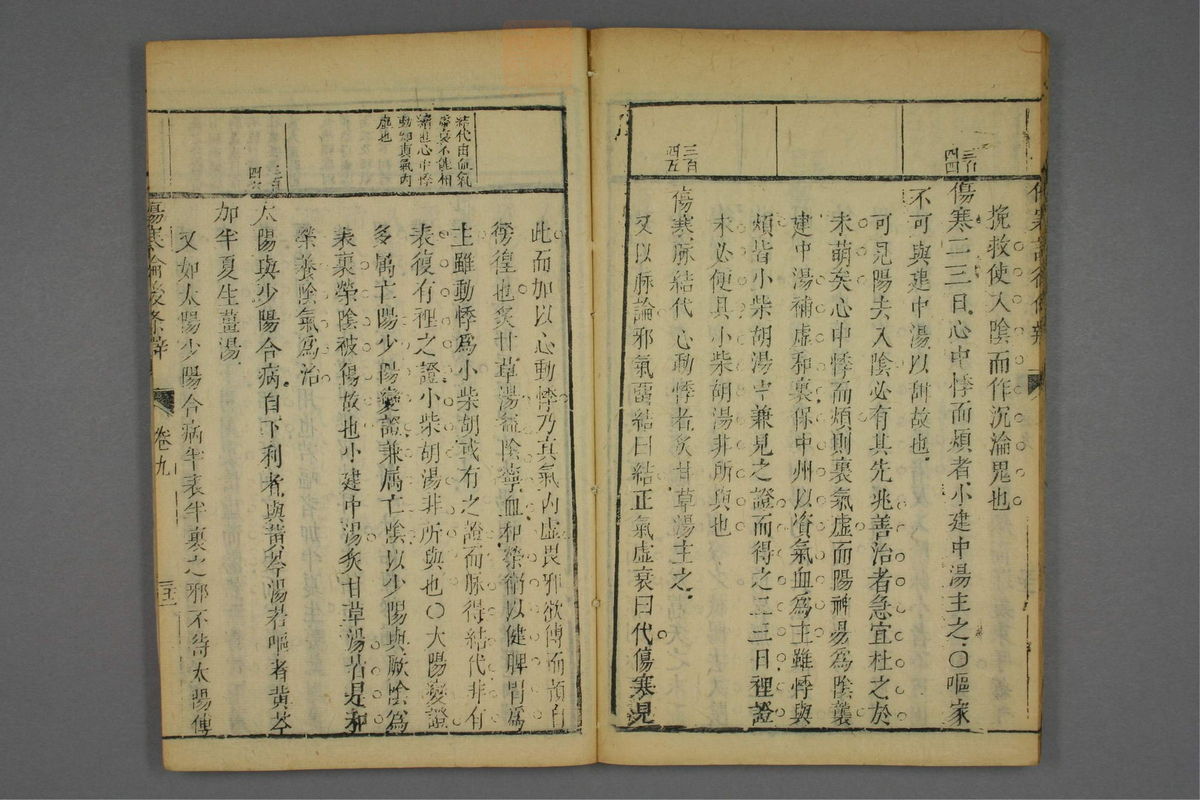 挽救使入陰而作沉淪鬼也
三百四四
傷寒二三日心中悸而煩者小建中湯主之〇嘔家
不可與建中湯以甜故也
可見陽去入陰必有其先兆善治者急宜杜之於
未萌矣心中悸而煩則裏氣虛而陽神易為陰襲
建中湯補虛和裏保中州以資氣血為主雖悸與
煩皆小柴胡湯中兼見之證而得之二三日裡證
未必便具小柴胡湯非所與也
三百四五
傷寒脉結代心動悸者炙甘草湯主之
又以脉論邪氣畱結曰結正氣虛衰曰代傷寒見
此而加以心動悸乃真氣內虛畏邪欲傳而
徬徨也炙甘草湯益陰寧血和榮衛以健脾胃為
主雖動悸為小柴胡或有之證而脉得結代非有
表復有裡之證小柴胡湯非所與也〇太陽變證
多属亡陽少陽變證兼属亡陰以少陽與厥陰為
表裏榮陰被傷故也小建中湯炙甘草湯皆是和
榮養陰氣為治
結代由血氣
不能相
心中悸
動知真氣內
虛也
三百四六
太陽與少陽合病自下利者與黃芩湯若嘔者黃芩
加半夏生薑湯
又如太陽少陽合病半表半裏之邪不待太陽傳
傷寒論後條辨
卷九